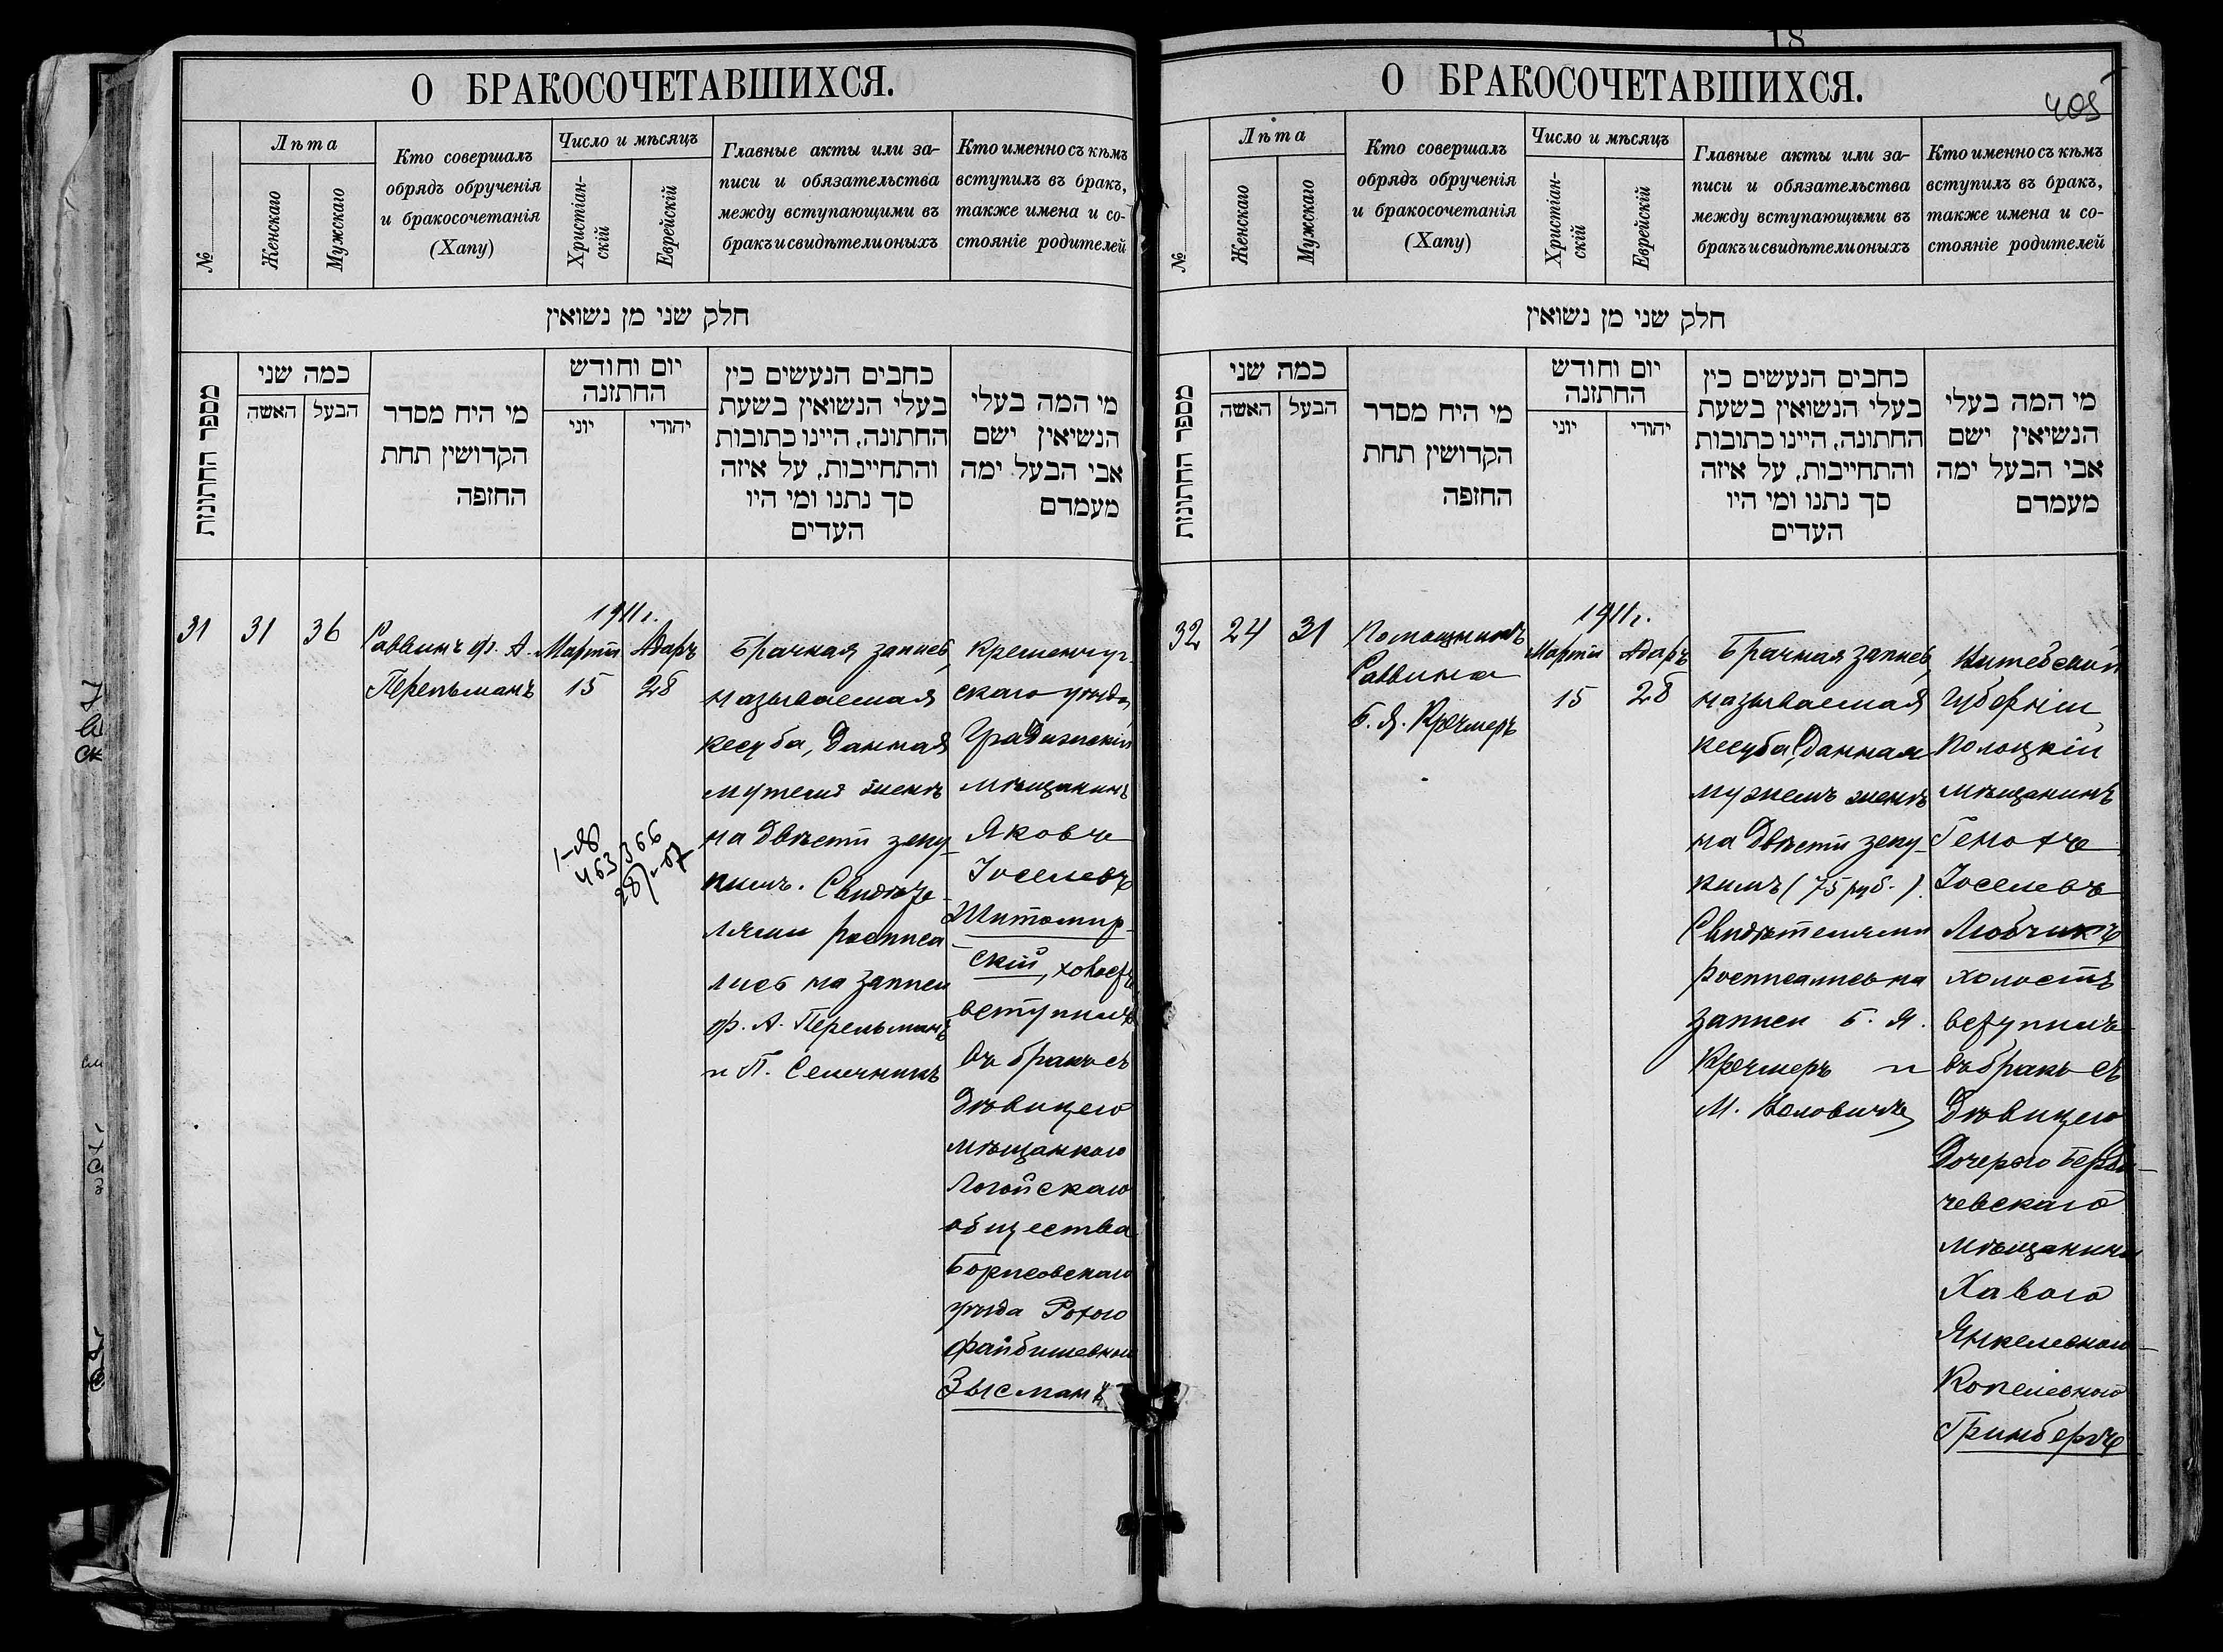 О БРАКОСОЧЕТАВШИХСЯ.
№
Лѣта
Женскаго
Мужскаго
Кто совершалъ
обрядъ обрученія
и бракосочетанія
(Хапу)
Число и мѣсяцъ
Христіан-
скій
Еврейскій
Главные акты или за-
писи и обязательства
между вступающими въ
бракъ и свидѣтели оныхъ
Кто именно съ кѣмъ
вступилъ въ бракъ,
также имена и со-
стояніе родителей
חלק שני מן נשואין
מספר החתונות
כמה שני
האשה
הבעל
מי היח מסדר
הקדושין תחת
החזפה
יום וחודש
החתזנה
יוני
יהודי
כחבים הנעשים כין
בעלי הנשואין בשעת
החתונה, היינו כתובות
והתחייבות, על איזה
סך נתנו ומי היו
העדים
מי המה בעלי
הנשיאין ישם
אבי הבעל ימה
מעמדם
31
31
36
Раввинъ ф. А.
Перельманъ
1911 г.
Мартъ
15
Адаръ
28
Брачная запись,
называемая
кесуба, данная
мужемъ женѣ
на двѣсти зеку-
кимъ. Свидѣте-
лями росписа-
лись на записи
ф. А. Перельманъ
и П. Семечникъ
Кременчуг-
скаго уѣзда,
Градижскій
мѣщанинъ
Яковъ
Іоселевъ
Житомир-
скій, холостъ
вступилъ
въ бракъ съ
дѣвицею
мѣщанкою
Логойскаго
общества
Борисовскаго
уѣзда Рохою
Файбишевною
Зысманъ
18
405
О БРАКОСОЧЕТАВШИХСЯ.
№
Лѣта
Женскаго
Мужскаго
Кто совершалъ
обрядъ обрученія
и бракосочетанія
(Хапу)
Число и мѣсяцъ
Христіан-
скій
Еврейскій
Главные акты или за-
писи и обязательства
между вступающими въ
бракъ и свидѣтели оныхъ
Кто именно съ кѣмъ
вступилъ въ бракъ,
также имена и со-
стояніе родителей
חלק שני מן נשואין
מספר החתונות
כמה שני
האשה
הבעל
מי היח מסדר
הקדושין תחת
החזפה
יום וחודש
החתזנה
יוני
יהודי
כחבים הנעשים כין
בעלי הנשואין בשעת
החתונה, היינו כתובות
והתחייבות, על איזה
סך נתנו ומי היו
העדים
מי המה בעלי
הנשיאין ישם
אבי הבעל ימה
מעמדם
32
24
31
Помощникъ
Раввина
Б. Я. Кречмеръ
1911 г.
Мартъ
15
Адаръ
28
Брачная запись,
называемая
кесуба, данная
мужемъ женѣ
на двѣсти зеку-
кимъ (75 руб.).
Свидѣтелями
росписались на
записи Б. Я.
Кречмеръ и
М.
Витебской
губерніи,
Полоцкій
мѣщанинъ
Генохъ
Іоселевъ
Любчикъ
холостъ
вступилъ
въ бракъ съ
дѣвицею
дочерью Берди-
чевскаго
мѣщанина
Хавою
Янкелевною-
Копелевною
Гринбергъ